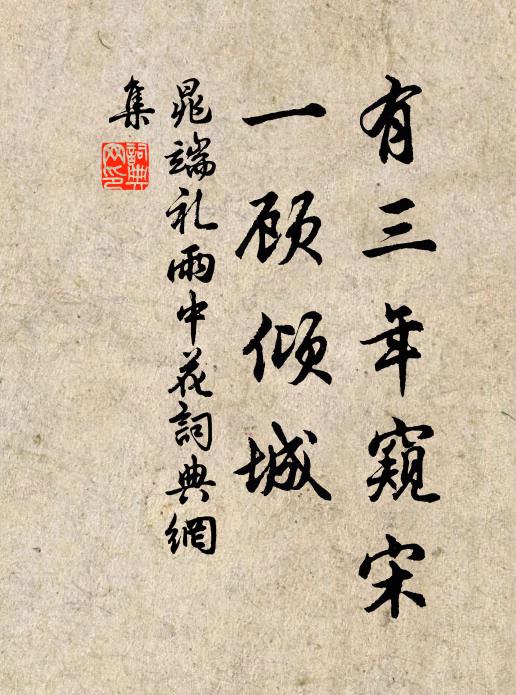 有三年窺宋
一顾倾城
晁端礼雨中花詞典網
集
詞典
网印